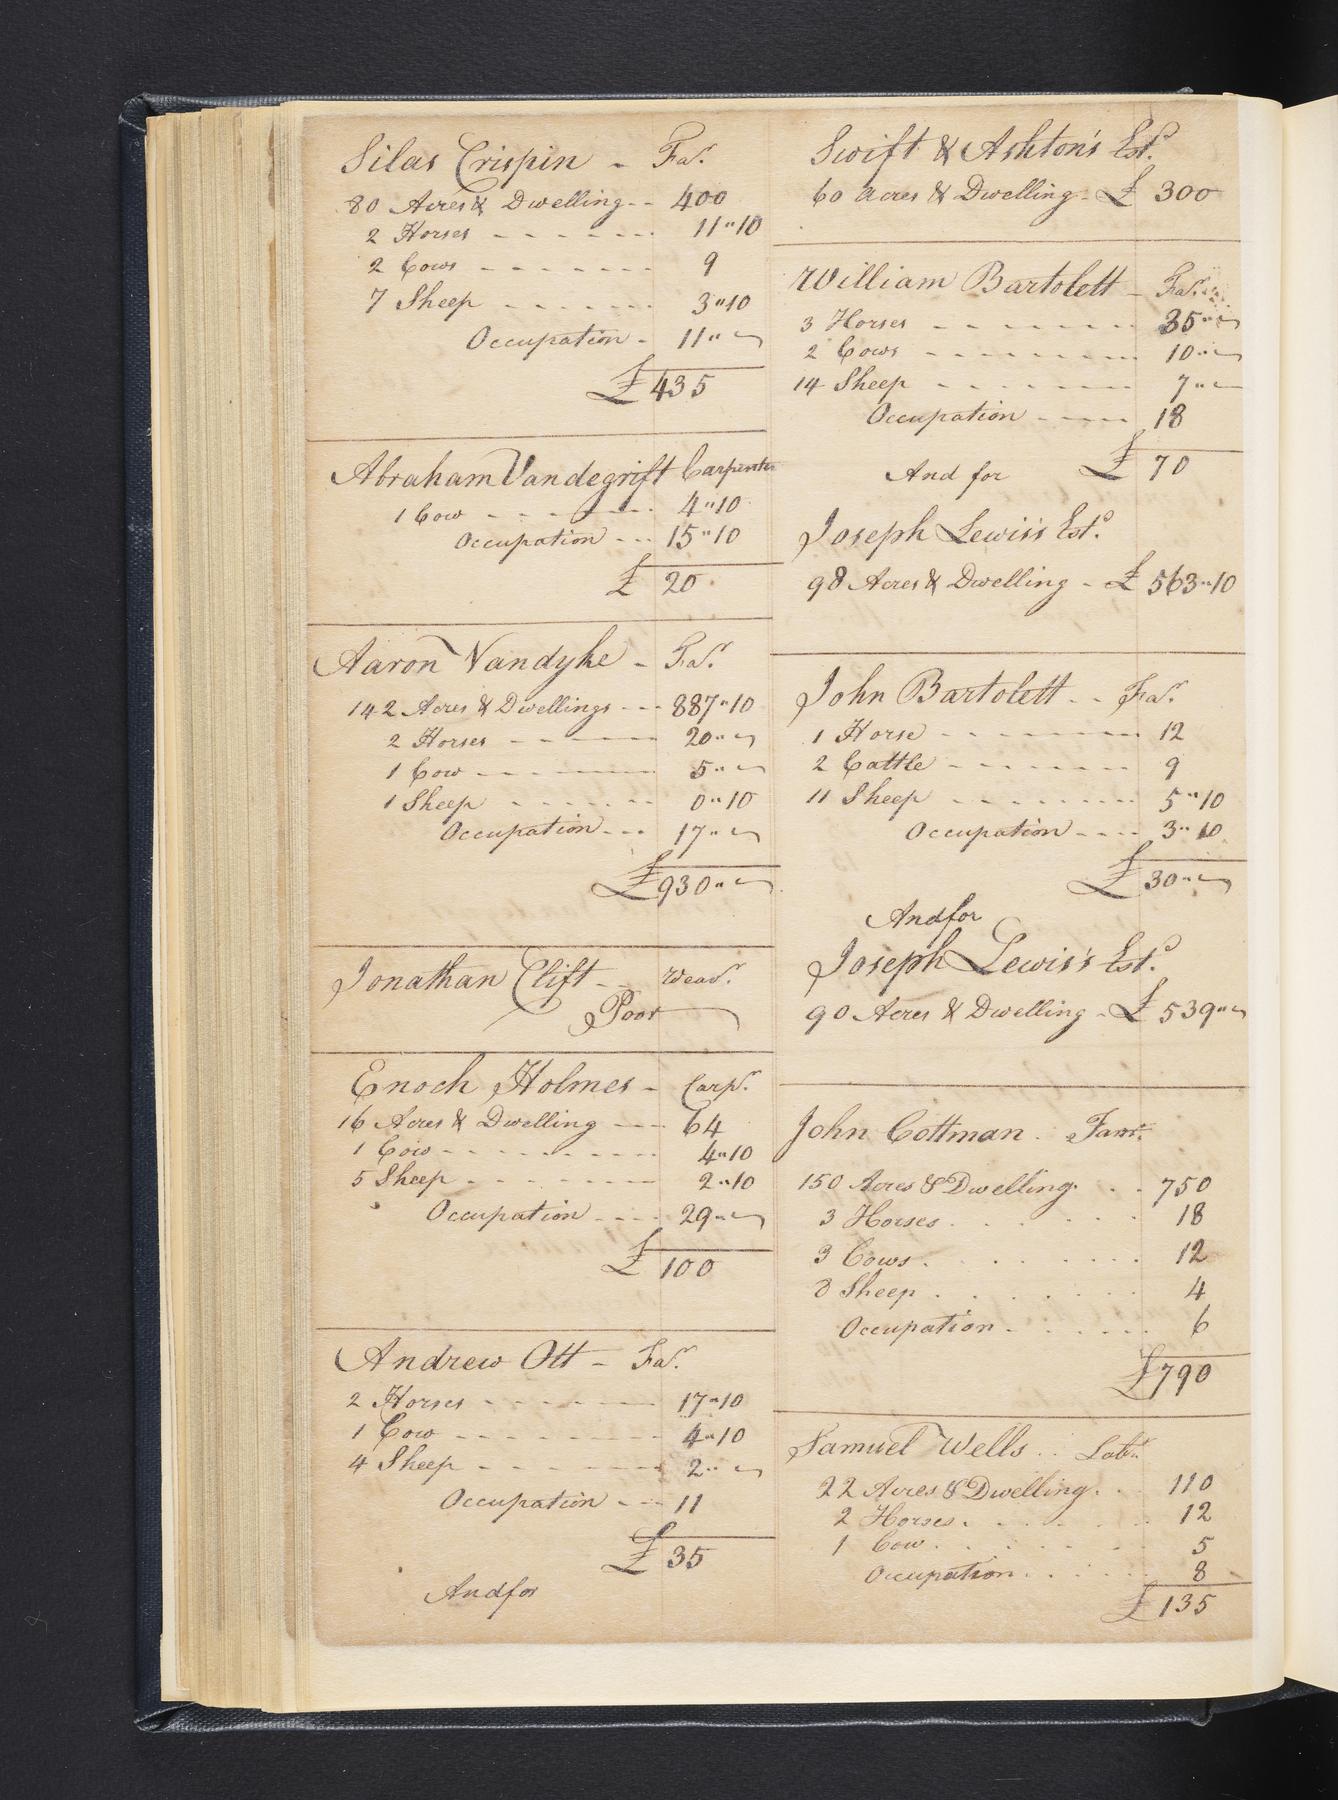 Silas Crispin - Far.
80 Acres & Dwelling - - 400
2 Horses - - - - - - 11"10
2 Cows - - - - - - - 9
7 Sheep - - - - - - 3"10
Occupation - 11"
£ 435
Abraham Vandegrift Carpenter
1 Cow - - - - - - 4"10
Occupation - - - 15"10
£ 20
Aaron Vandyke - Far.
142 Acres & Dwellings - - - 887"10
2 Horses - - - - - 20"
1 Cow - - - - - - 5"
1 Sheep - - - - - - 0"10
Occupation - - - 17"
£ 930"
Jonathan Clift - - Weavr.
Poor
Enoch Holmes - Carpr.
16 Acres & Dwelling - - - 64
1 Cow - - - - - - - - 4"10
5 Sheep - - - - - - - 2"10
Occupation - - - - 29"
£ 100
Andrew Ott - Far.
2 Horses - - - - - - 17"10
1 Cow - - - - - - - 4"10
4 Sheep - - - - - - 2"
Occupation - - - 11
£ 35
And for
Swift & Ashton's Estd.
60 acres & Dwelling - £ 300
William Bartolett - Far.
3 Horses - - - - - - - 35"
2 Cows - - - - - - - - 10"
14 Sheep - - - - - - - 7"
Occupation - - - - 18
£ 70
And for
Joseph Lewis's Estd.
98 Acres & Dwelling - £ 563"10
John Bartolett - - Far.
1 Horse - - - - - - - 12
2 Cattle - - - - - - - 9
11 Sheep - - - - - - - 5"10
Occupation - - - - 3"10
£ 30"
And for
Joseph Lewis's Estd.
90 Acres & Dwelling - £ 539"
John Cottman . Farr.
150 Acres & Dwelling . . . 750
3 Horses . . . . . . 18
3 Cows . . . . . . 12
8 Sheep . . . . . . 4
Occupation . . . . . 6
£ 790
Samuel Wells . . Labr.
22 Acres & Dwelling . . . 110
2 Horses . . . . . . 12
1 Cow . . . . . . 5
Occupation . . . . . 8
£ 135